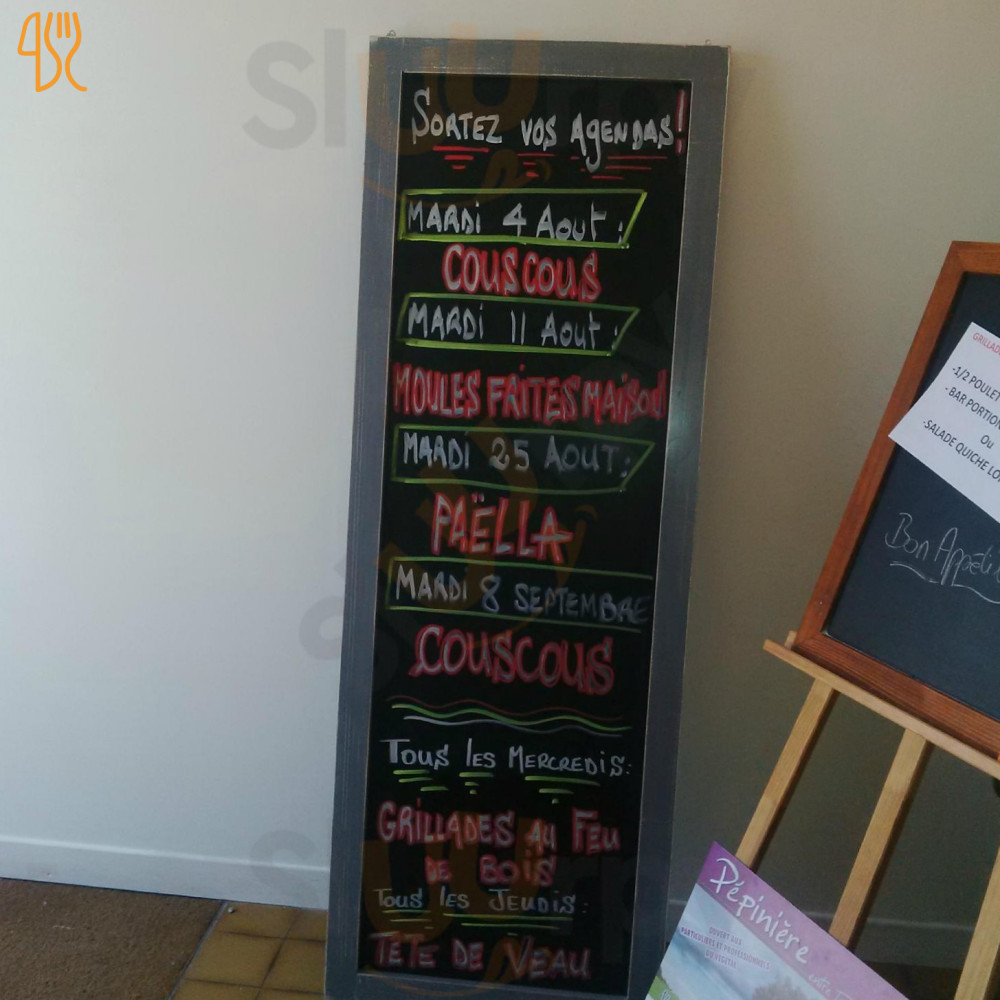 SORTEZ VOS AGENDAS!
MARDI 4 AOUT:
COUSCOUS
MARDI 11 AOUT:
MOULES FAITES MAISON
MARDI 25 AOUT:
PAËLLA
MARDI 8 SEPTEMBRE
COUSCOUS
TOUS LES MERCREDIS:
GRILLADES AU FEU
DE BOIS
TOUS LES JEUDIS:
TETE DE VEAU
-1/2 POULET
- BAR PORTION
OU
-SALADE QUICHE
Bon Appéti
Pépinière
OUVERT AUX
PARTICULIERS ET PROFESSIONNELS
DU VEGETAL